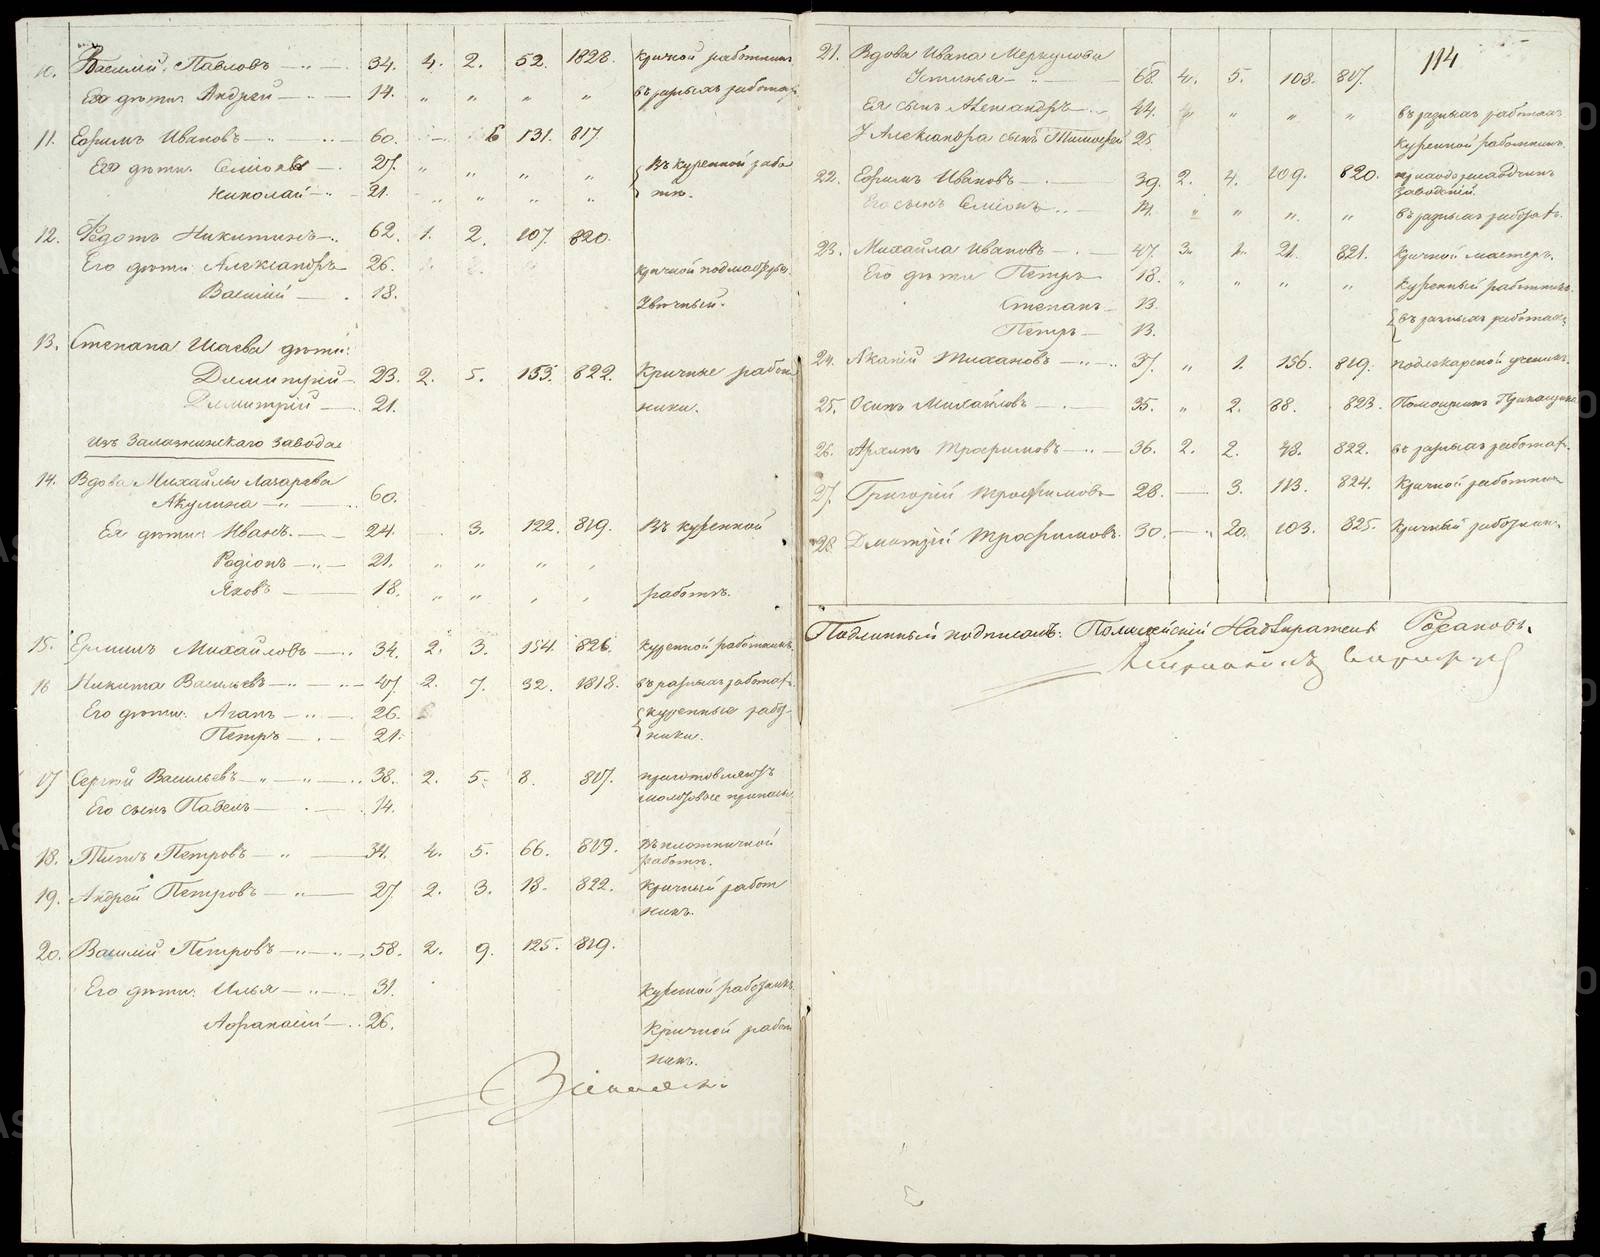 10. Василий Павловъ 34. 4. 2. 52. 1828. Кричной работникъ
Его дѣти Андрей 14. " " " " въ разныхъ работахъ
11. Ефимъ Ивановъ 60. 6 131. 817.
Его дѣти: Семіонъ 27. " " " " въ куренной рабо
Николай 21. " " " " тѣ.
12. Федотъ Никитинъ 62. 1. 2. 107. 820.
Его дѣти: Александръ 26. Кричной подмастерье
Василий 18. Увѣчный.
13. Степана Исаева дѣти:
Димитрий 23. 2. 5. 153. 822. Кричные работ
Димитрій 21. ники.
Изъ Залазнинскаго завода
14. Вдова Михайлы Лазарева
Акулина 60.
Ея дѣти: Иванъ. 24. 3. 122. 819. Въ куренной
Родіонъ 21. " " " "
Яковъ 18. " " " " работѣ.
15. Михайловъ 34. 2. 3. 154. 826. Куренной работникъ.
16 Никита Васильевъ 47. 2. 7. 32. 1818. въ разныхъ работах.
Его дѣти: Агапъ 26. куренные рабо-
Петръ 21. ники.
17 Сергѣй Васильевъ 38. 2. 5. 8. 817. приготовляютъ
Его сынъ Павелъ 14. припасы
18. Титъ Петровъ 34. 4. 5. 66. 819. Въ плотничной
работѣ.
19. Андрей Петровъ 27. 2. 3. 18. 822. Кричный работ
никъ.
20. Василий Петровъ 58. 2. 9. 125. 819.
Его дѣти: Илья 31. Куренной работникъ
Афанасій 26. Кричной работ
никъ.
114
21. Вдова Ивана Меркулова
Устинья 68. 4. 5. 108. 817.
Ея сынъ Александръ 44. " " " " въ разныхъ работахъ
У Александра сынъ Тимофей 25. Куренной работникъ.
22. Ефимъ Ивановъ 39. 2. 4. 109. 820.
заводскій.
Его сынъ Семіонъ 14. " " " " въ разныхъ работах.
23. Михайла Ивановъ 47. 3. 1. 21. 821. Кричной мастеръ.
Его дѣти Петръ 18. " " " " Куренный работникъ.
Степанъ 13. въ разныхъ работахъ
Петръ 13.
24. Тихановъ 37. " 1. 156. 819. подлекарской ученикъ.
25. Осипъ Михайловъ 35. " 2. 88. 823. Помощникъ Прикащика
26. Архипъ Трофимовъ 36. 2. 2. 48. 822. въ разныхъ работах.
27. Григорій Трофимовъ 28. 3. 113. 824. Кричной работник
28. Дмитрій Трофимовъ. 30. 20. 103. 825. Кричный работник.
Подлинный подписалъ: Полицейскій Надзиратель
METRIKI.GASO-URAL.RU